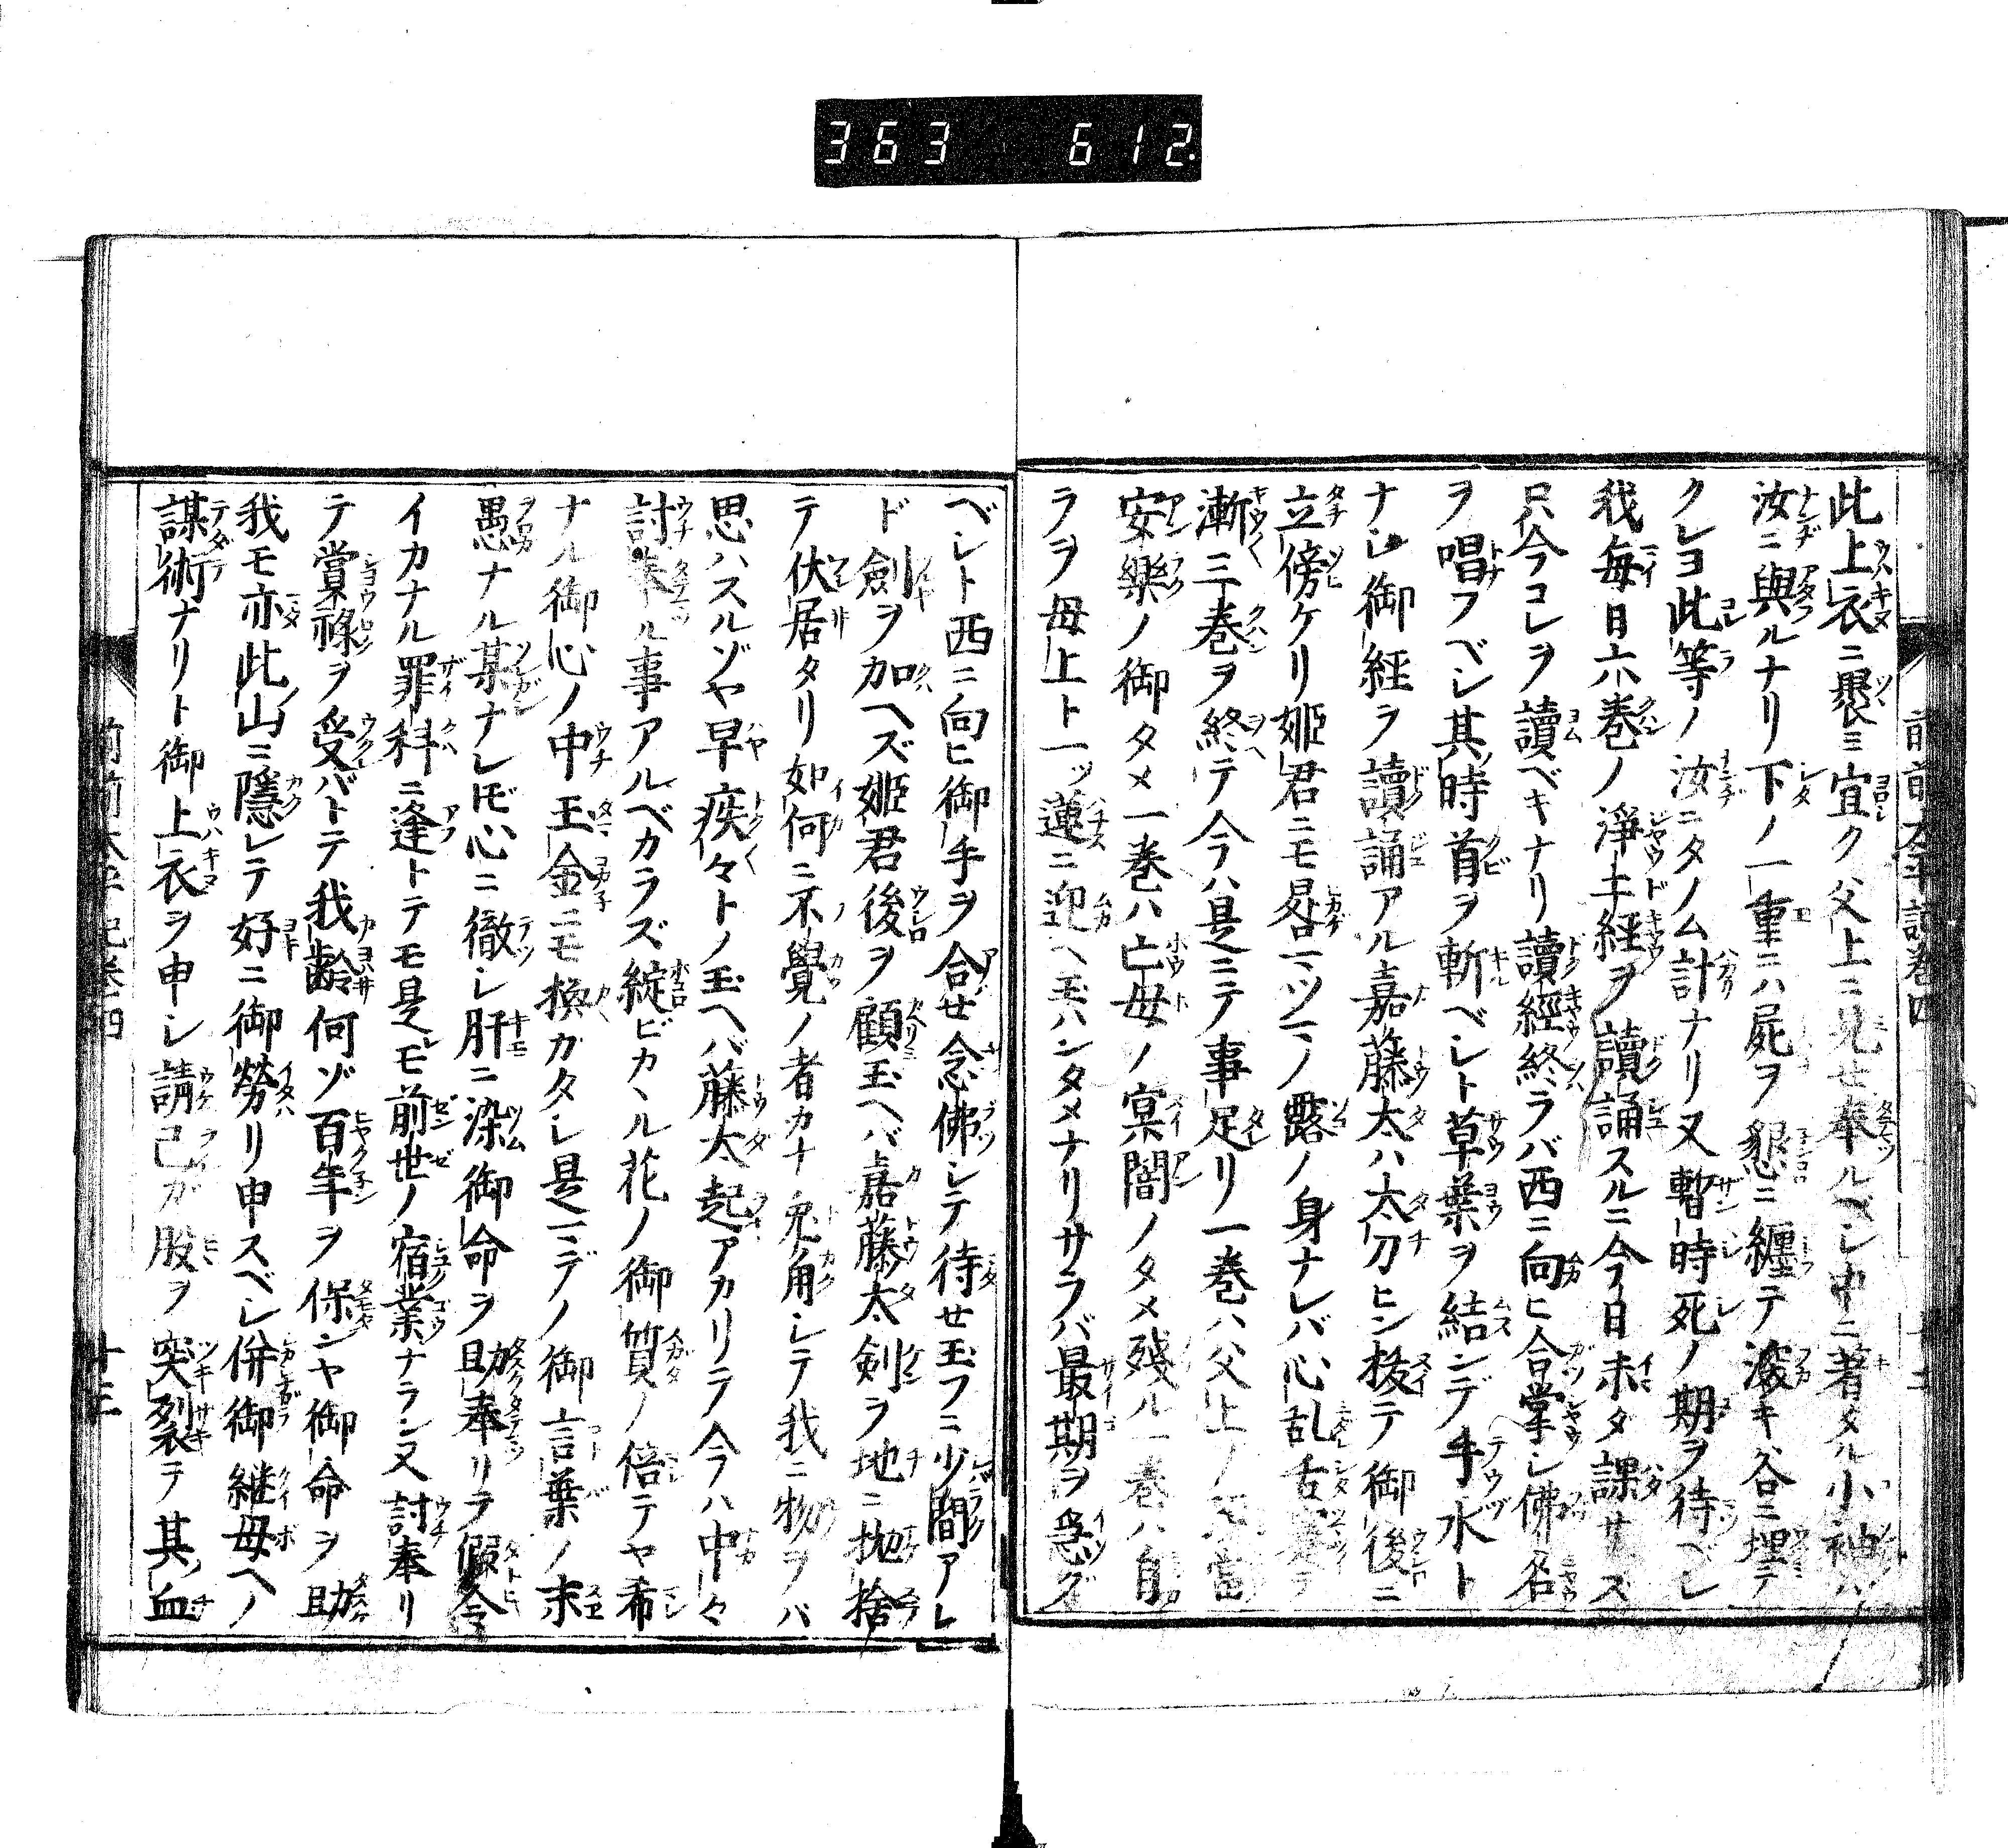 363 612.
前前太平記巻四
此上衣ニ褁ミ宜ク父上ニ見セ奉ルベシ中ニ著タル小袖ハ
汝ニ與ルナリ下ノ一重ニハ屍ヲ懇ニ纒テ深キ谷ニ埋テ
クレヨ此等ノ汝ニタノム計ナリ又暫時死ノ期ヲ待ベシ
我毎日六巻ノ淨土経ヲ讀誦スルニ今日未タ課サズ
只今コレヲ讀ベキナリ讀經終ラバ西ニ向ヒ合掌シ佛名
ヲ唱フベシ其時首ヲ斬ベシト草葉ヲ結ンデ手水ト
ナシ御経ヲ讀誦アル嘉藤太ハ太刀ヒン拔テ御後ニ
立傍ケリ姫君ニモ畧一ツ一ノ露ノ身ナレバ心乱舌
漸三巻ヲ終テ今ハ是ニテ事足リ一巻ハ父上ノ
安樂ノ御タメ一巻ハ亡母ノ冥闇ノタメ殘ル一巻ハ自
ラヲ母上ト一ッ蓮ニ迎ヘ玉ハンタメナリサラバ最期ヲ急グ
ベシト西ニ向ヒ御手ヲ合せ念佛シテ待セ玉フニ少間アレ
ド劍ヲ加ヘズ姫君後ヲ顧玉ヘバ嘉藤太剣ヲ地ニ抛捨
テ伏居タリ如何ニ不覺ノ者カナ兎角シテ我ニ物ヲバ
思ハスルゾヤ早疾々トノ玉ヘバ藤太起アカリテ今ハ中々
討奉ル事アルベカラズ綻ビカヽル花ノ御質ノ倍テヤ希
ナル御心ノ中玉金ニモ換ガタシ是マデノ御言葉ノ末
愚ナル某ナレ𪜈心ニ徹シ肝ニ染御命ヲ助奉リヲ假令
イカナル罪科ニ逢トテモ是モ前世ノ宿業ナラン又討奉リ
テ賞祿ヲ受バトテ我齢何ゾ百年ヲ保ンヤ御命ヲ助
我モ亦此山ニ隱レテ好ニ御勞リ申スベシ併御継母ヘノ
謀術ナリト御上衣ヲ申シ請己ガ股ヲ突裂テ其血
前前太平記巻四
十三